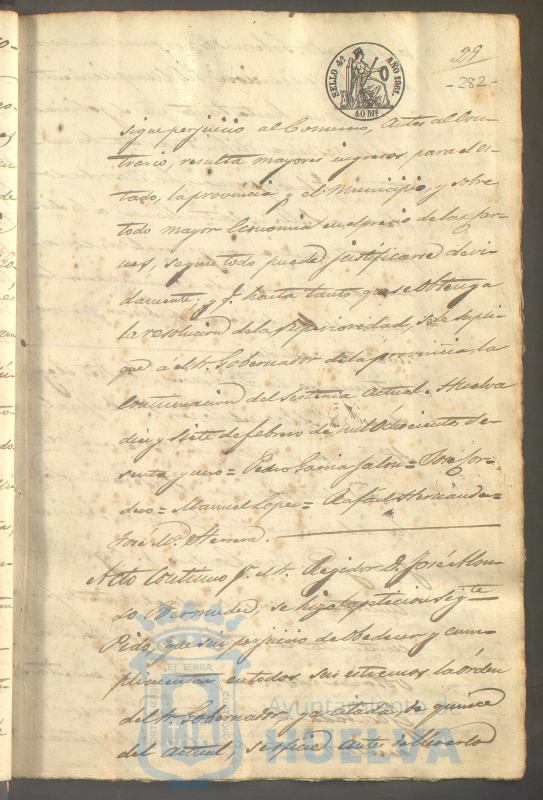 29
-282-
SELLO 4º AÑO 1861.
40 Mˢ
sigue perjuicio al Comercio, Antes al Con-
trario, resulta mayores ingresos para el es-
tado, la provincia y el Municipio, y sobre
todo mayor Economia en el precio de las Car-
nes, segun todo puede justificarse devi-
damente; y qᵉ hasta tanto que se obtenga
la resolucion de la Superioridad, se le supli-
que á el Sr. Gobernador de la provincia, la
Continuacion del Sistema Actual. Huelva
diez y siete de febrero de mil Ochocientos Se-
senta y uno = Pedro Garcia Jalon = José Cor-
dero = Manuel Lopez = Rafael Hernandez =
José Mª Herrera.
Acto Continuo pʳ el Sr. Regidor D. José Alon-
so Bermudez, se hizo la peticion sigᵗᵉ
Pido, que sin perjuicio de Obedecer y cum-
plimentar en todos sus extremos la órden
del Sr. Gobernador ya citada, de quince
del Actual, se oficie Antes de llevarlo
ET TERRÆ
Ayuntamiento de
HUELVA